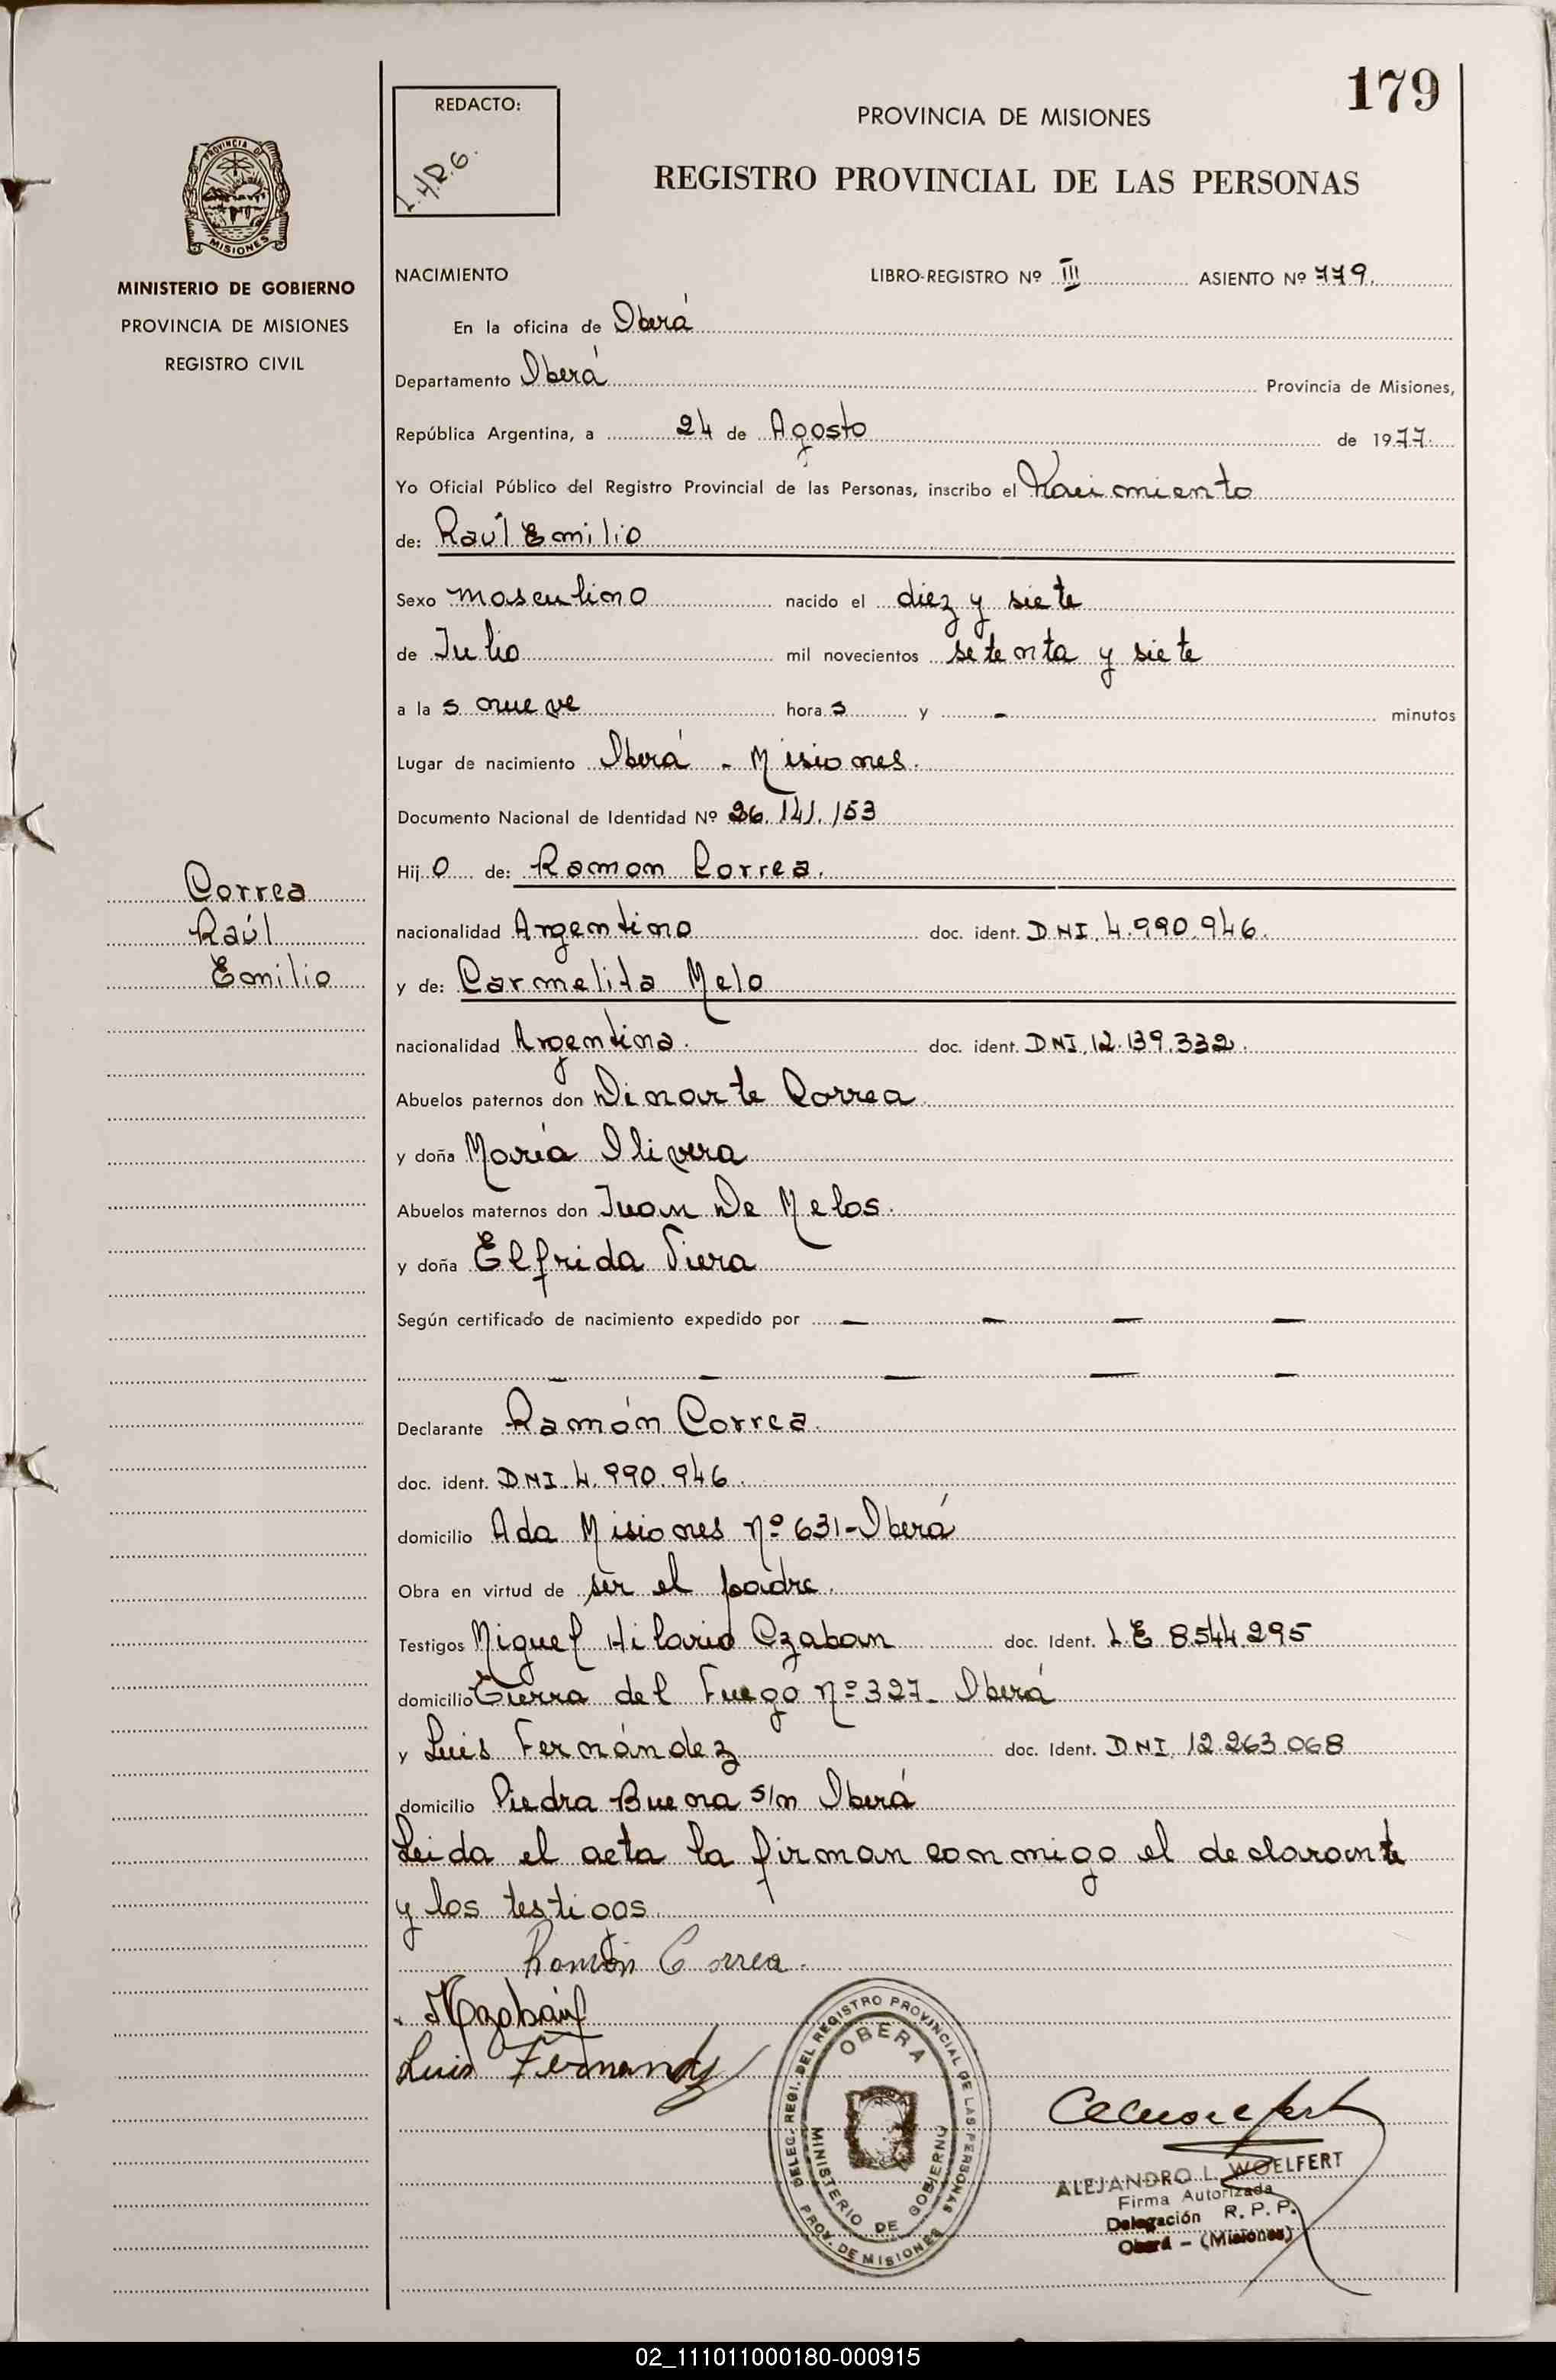 179
REDACTO:
PROVINCIA DE MISIONES
REGISTRO PROVINCIAL DE LAS PERSONAS
PROVINCIA DE
MISIONES
MINISTERIO DE GOBIERNO
PROVINCIA DE MISIONES
REGISTRO CIVIL
NACIMIENTO LIBRO-REGISTRO Nº III ASIENTO Nº 779.
En la oficina de Oberá
Departamento Oberá Provincia de Misiones,
República Argentina, a 24 de Agosto de 1977.
Yo Oficial Público del Registro Provincial de las Personas, inscribo el Nacimiento
de: Raúl Emilio
Sexo masculino nacido el diez y siete
de Julio mil novecientos setenta y siete
a la s nueve hora s y - minutos
Lugar de nacimiento Oberá - Misiones.
Documento Nacional de Identidad Nº 26.141.153
Hij o de: Ramon Correa.
Correa
Raúl
Emilio
nacionalidad Argentino doc. ident. DNI. 4.990.946.
y de: Carmelita Melo
nacionalidad Argentina. doc. ident. DNI. 12.139.332.
Abuelos paternos don Dinarte Correa
y doña María Olivera
Abuelos maternos don Juan De Melos.
y doña Elfrida Viera
Según certificado de nacimiento expedido por — — — —
— — — — —
Declarante Ramón Correa.
doc. ident. DNI. 4.990.946.
domicilio Ada Misiones nº 631-Oberá
Obra en virtud de ser el padre.
Testigos Miguel Hilario Czaban doc. Ident. L.E 8.544.295
domicilio Tierra del Fuego nº 327- Oberá
y Luis Fernández doc. Ident. DNI. 12.263.068
domicilio Piedra Buena s/n Oberá
Leida el acta la firman conmigo el declarante
y los testigos.
Ramón Correa.
Luis Fernandez
DELEG. REGI. DEL REGISTRO PROVINCIAL DE LAS PERSONAS
OBERA
MINISTERIO DE GOBIERNO
PROV. DE MISIONES
ALEJANDRO L. WOELFERT
Firma Autorizada
Delegación R. P. P.
Oberá - (Misiones)
02_111011000180-000915